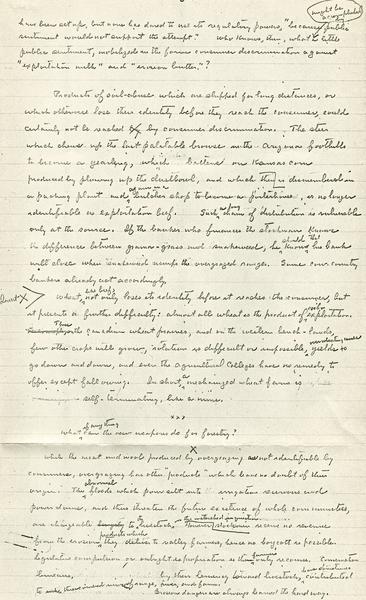 might be accomplished
have been set up, but none has dared to use its regulatory powers, "because public
sentiment would not support the attempt." Who knows, then, what a little
public sentiment, mobilized in the form consumer discrimination against
"exploitation milk" and "erosion butter"?
Products of soil-abuse which are shipped for long distances, or
which otherwise lose their identity before they reach the consumer, could
certainly not be reached by consumer discrimination. The steer
which chews up the last palatable browse in the Arizona foothills
to become a yearling, which fattens on Kansas corn
produced by plowing up the dustbowl, and which then is dismembered in
a packing plant and butcher shop to become a porterhouse, is no longer
identifiable as exploitation beef. Such a long chain of distribution is vulnerable
only at the source. If the banker who finances the stockman knows
the difference between grama-grass and snakeweed, he should also know his bank
will close when snakeweed usurps the overgrazed ranges. Some cow country
bankers already act accordingly.
Insert X
Wheat, like beef, not only loses its identity before it reaches the consumer, but
it presents a further difficulty: almost all wheat is the product of soil exploitation.
Thus the Canadian wheat prairies, and on the western bench-lands,
few other crops will grow, rotation is difficult or impossible, yields
go down and down, and even the Agricultural Colleges have no remedy to
offer except fallowing. In short, a mechanized wheat farm is
self-terminating, like a mine.
xxx
What, if anything, can the new weapons do for forestry?
While the meat and wool produced by overgrazing is not identifiable by
consumers, overgrazing has other "products" which leave no doubt of their
origin: The abnormal floods which pour silt into irrigation reservoirs and
power dams, and thus threaten the future existence of whole communities,
are chargeable to livestock. However, stockmen receive no revenue
from the erosion products which they deliver to valley farmers, hence no boycott is possible.
Legislative compulsion or outright expropriation is the only recourse. Conservation
by their leniency toward livestock, contributed
to
Erosion dangers are always learned the hard way.